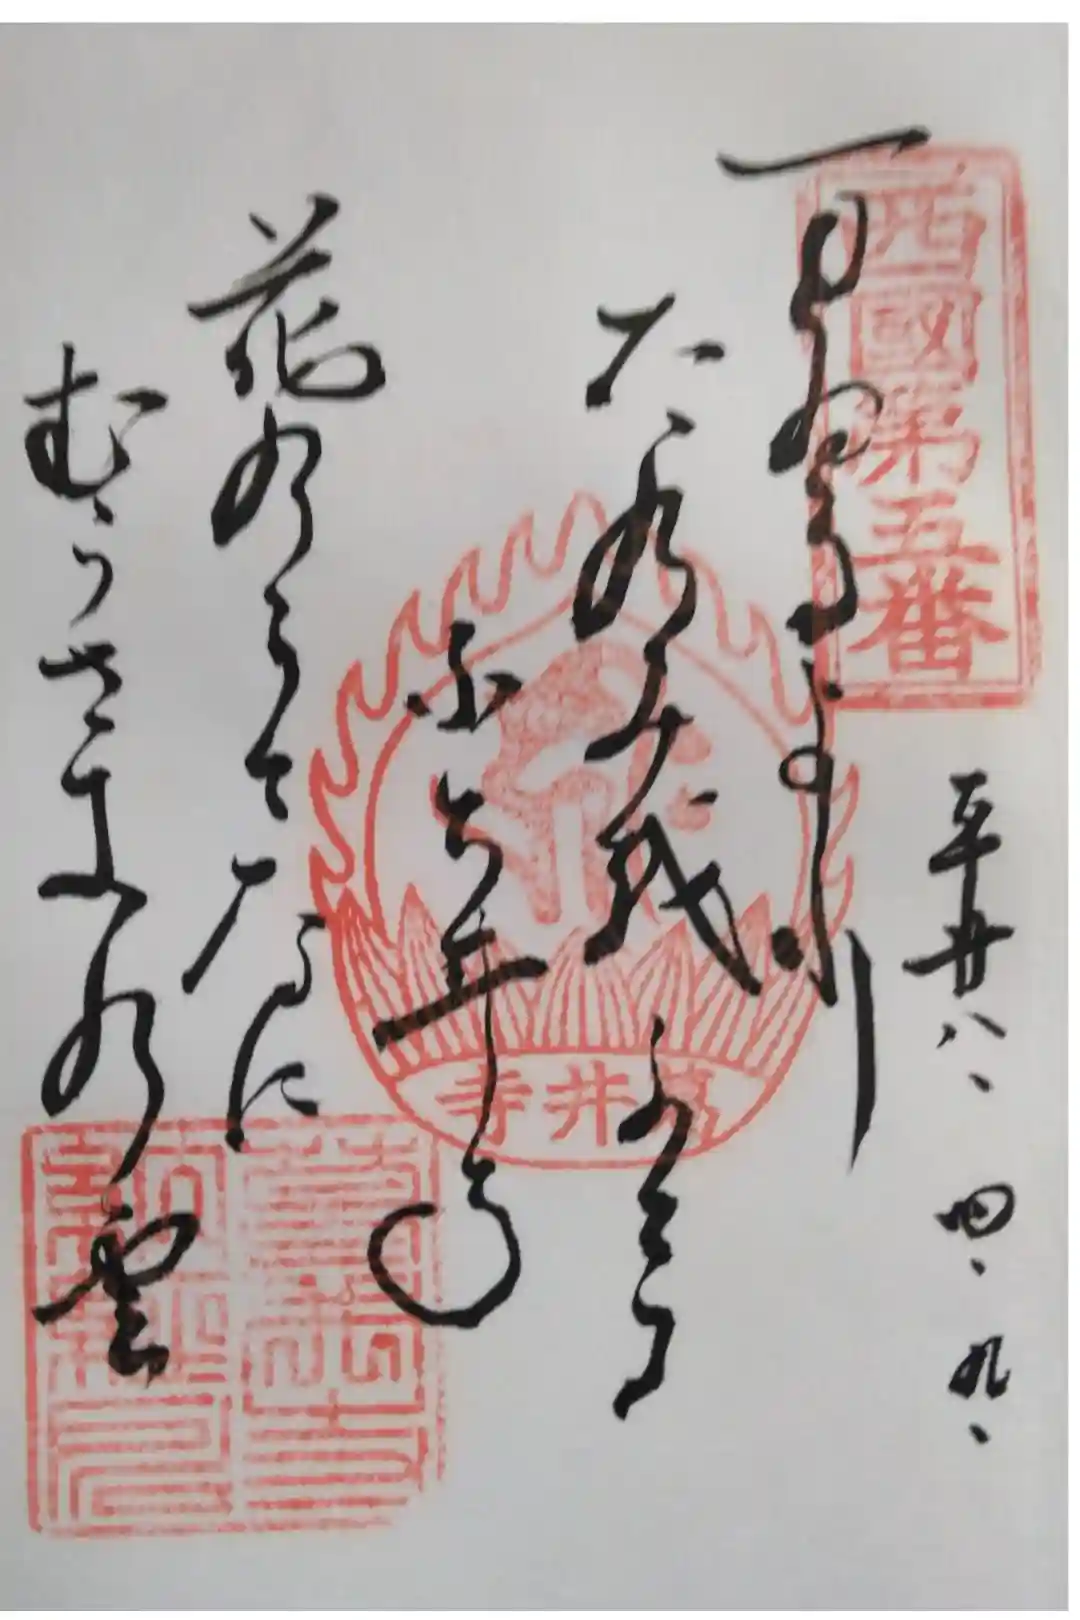 西國第五番
平廿八、四、九、
まゐるより
たのみをかくる
花のうてなに
むらさきの雲
葛井寺